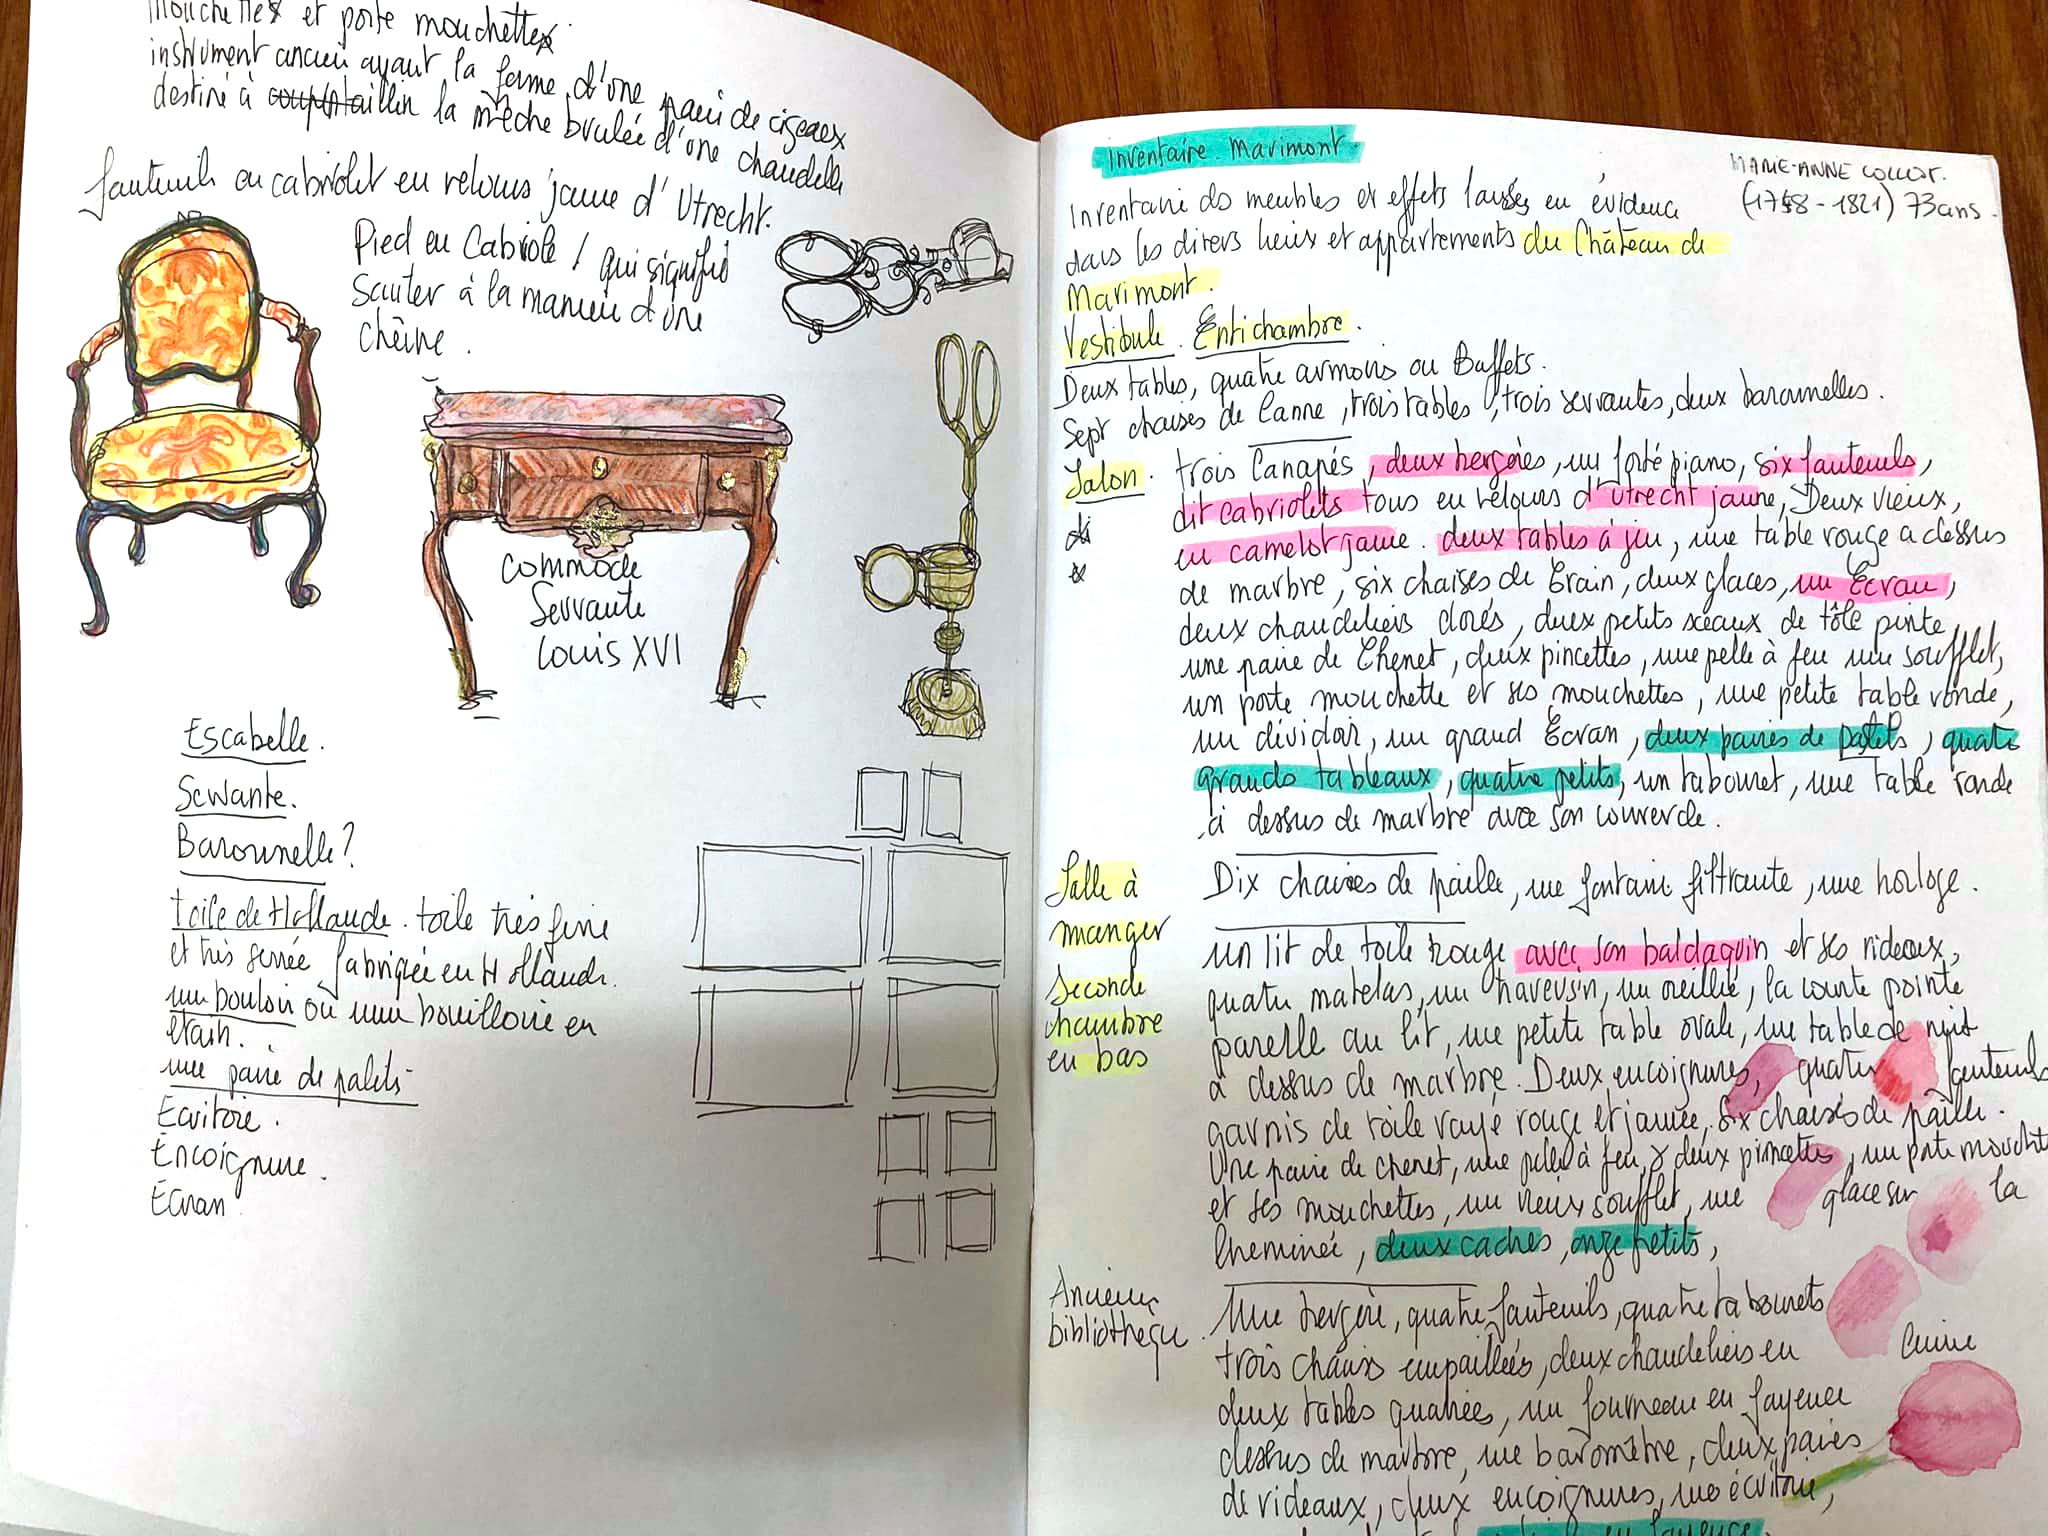 Mouchettes et porte mouchettes
instrument ancien ayant la forme d'une paire de ciseaux
destiné à tailler la mèche brulée d'une chandelle
fauteuils en cabriolet en velours jaune d'Utrecht.
Pied en Cabriole ! qui signifie
Sauter à la manière d'une
chèvre.
Commode
Servante
Louis XVI
Escabelle.
Servante.
Barounelle ?
Toile de Hollande. toile très fine
et très serrée fabriquée en Hollande.
un bouloir ou une bouilloire en
étain.
une paire de palets
Ecritoire.
Encoignure.
Ecran
Inventaire. Marimont.
MARIE-ANNE COLLOT.
(1748 - 1821) 73 ans.
Inventaire ds meubles et effets laissés en évidence
dans les divers lieux et appartements du Château de
Marimont.
Vestibule. Entichambre.
Deux tables, quatre armoires ou Buffets.
Sept chaises de Canne, trois tables, trois servantes, deux barounelles.
Salon. trois Canapés, deux bergères, un forté piano, six fauteuils,
dit cabriolets tous en velours d'utrecht jaune, Deux vieux,
en camelot jaune. deux tables à jeu, une table rouge a dessus
de marbre, six chaises de Crain, deux glaces, un Ecran,
deux chandeliers dorés, deux petits sceaux de tôle peinte,
une paire de Chenet, deux pincettes, une pelle à feu une soufflet,
un porte mouchette et ses mouchettes, une petite table ronde,
un dévidoir, un grand Ecran, deux paires de pastels, quatre
grands tableaux, quatre petits, un tabouret, une table ronde
à dessus de marbre avec son couvercle.
Salle à manger Dix chaises de paille, une fontaine filtrante, une horloge.
Seconde chambre en bas
un lit de toile rouge avec son baldaquin et ses rideaux,
quatre matelas, un traversin, un oreillié, la courte pointe
pareille au lit, une petite table ovale, une table de nuit
à dessus de marbre. Deux encoignures, quatre fauteuils
garnis de toile rayé rouge et jaune, six chaises de paille.
Une paire de chenet, une pelle à feu, & deux pincettes, un porte mouchette
et ses mouchettes, un vieux soufflet, une glace sur la
Cheminée, deux caches, onze petits,
Ancienne bibliothèque. Une bergère, quatre fauteuils, quatre tabourets
trois chaises empaillées, deux chandeliers en cuivre
deux tables quarrées, un fourneau en fayence
dessus de marbre, une baromètre, deux paires
de rideaux, deux encoignures, une écritoire,
en fayence.